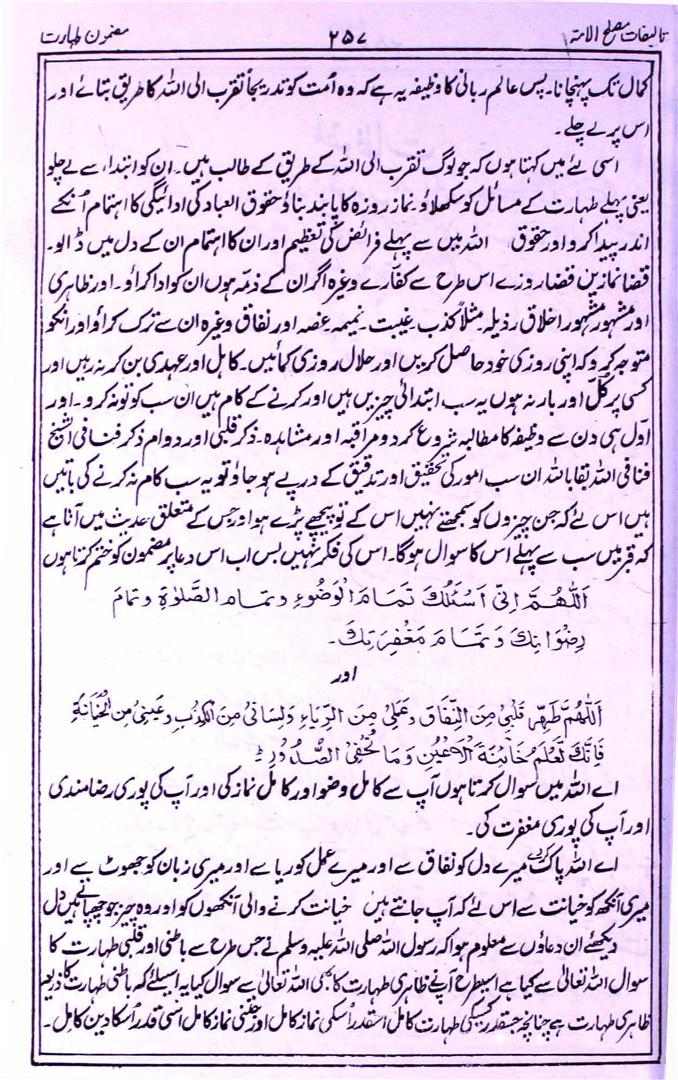 تالیفات مصلح الامۃ ۲۵۷ مضمون طہارت
کمال تک پہنچانا۔ پس عالم ربانی کا وظیفہ یہ ہے کہ وہ اُمت کو تدریجاً تقرب الی اللہ کا طریق بتائے اور
اس پر لے چلے۔
اسی لئے میں کہتا ہوں کہ جو لوگ تقرب الی اللہ کے طریق کے طالب ہیں۔ ان کو ابتدا سے لے چلو
یعنی پہلے طہارت کے مسائل کو سکھلاؤ۔ نماز روزہ کا پابند بناؤ حقوق العباد کی ادائیگی کا اہتمام اُنکے
اندر پیدا کرو اور حقوق اللہ میں سے پہلے فرائض کی تعظیم اور ان کا اہتمام ان کے دل میں ڈالو۔
قضا نمازیں قضا روزے اس طرح سے کفّارے وغیرہ اگر ان کے ذمہ ہوں ان کو ادا کراؤ۔ اور ظاہری
اور مشہور مشہور اخلاق رذیلہ۔ مثلاً کذب۔ غیبت۔ نمیمہ۔ غصہ اور نفاق وغیرہ ان سے ترک کراؤ اور انکو
متوجہ کرو کہ اپنی روزی خود حاصل کریں اور حلال روزی کمائیں۔ کاہل اور عہدی بن کر نہ رہیں اور
کسی پر کَلّ اور بار نہ ہوں یہ سب ابتدائی چیزیں ہیں اور کرنے کے کام ہیں ان سب کو تو نہ کرو۔ اور
اوّل ہی دن سے وظیفہ کا مطالبہ شروع کر دو مراقبہ اور مشاہدہ۔ ذکر قلبی اور دوام ذکر فنا فی الشیخ
فنا فی اللہ بقا باللہ ان سب امور کی تحقیق اور تدقیق کے درپے ہو جاؤ تو یہ سب کام نہ کرنے کی باتیں
ہیں اس لئے کہ جن چیزوں کو سمجھتے نہیں اس کے تو پیچھے پڑے ہو اور جس کے متعلق حدیث میں آتا ہے
کہ قبر میں سب سے پہلے اس کا سوال ہوگا۔ اس کی فکر نہیں بس اب اس دعا پر مضمون کو ختم کرتا ہوں
اَللّٰهُمَّ اِنِّی اَسْئَلُكَ تَمَامَ الْوَضُوْءِ وَتَمَامَ الصَّلٰوةِ وَتَمَامَ
رِضْوَانِكَ وَتَمَامَ مَغْفِرَتِكَ۔
اور
اَللّٰهُمَّ طَهِّرْ قَلْبِیْ مِنَ النِّفَاقِ وَعَمَلِیْ مِنَ الرِّیَاءِ وَلِسَانِیْ مِنَ الْکَذِبِ وَعَیْنِیْ مِنَ الْخِیَانَةِ
فَاِنَّكَ تَعْلَمُ خَائِنَةَ الْاَعْیُنِ وَمَا تُخْفِی الصُّدُوْرُ۔
اے اللہ میں سوال کرتا ہوں آپ سے کامل وضو اور کامل نماز کی اور آپ کی پوری رضامندی
اور آپ کی پوری مغفرت کی۔
اے اللہ پاک کر دے میرے دل کو نفاق سے اور میرے عمل کو ریا سے اور میری زبان کو جھوٹ سے اور
میری آنکھ کو خیانت سے اس لئے کہ آپ جانتے ہیں خیانت کرنے والی آنکھوں کو اور وہ چیز جو چھپاتے ہیں دل
دیکھئے ان دعاؤں سے معلوم ہوا کہ رسول اللہ صلی اللہ علیہ وسلم نے جس طرح سے باطنی اور قلبی طہارت کا
سوال اللہ تعالیٰ سے کیا ہے اسیطرح آپنے ظاہری طہارت کا بھی اللہ تعالیٰ سے سوال کیا یہ اسلئے کہ باطنی طہارت کا ذریعہ
ظاہری طہارت ہے چنانچہ جسقدر کسی کی طہارت کامل اسقدر اُسکی نماز کامل اور جتنی نماز کامل اسی قدر اُسکا دین کامل۔